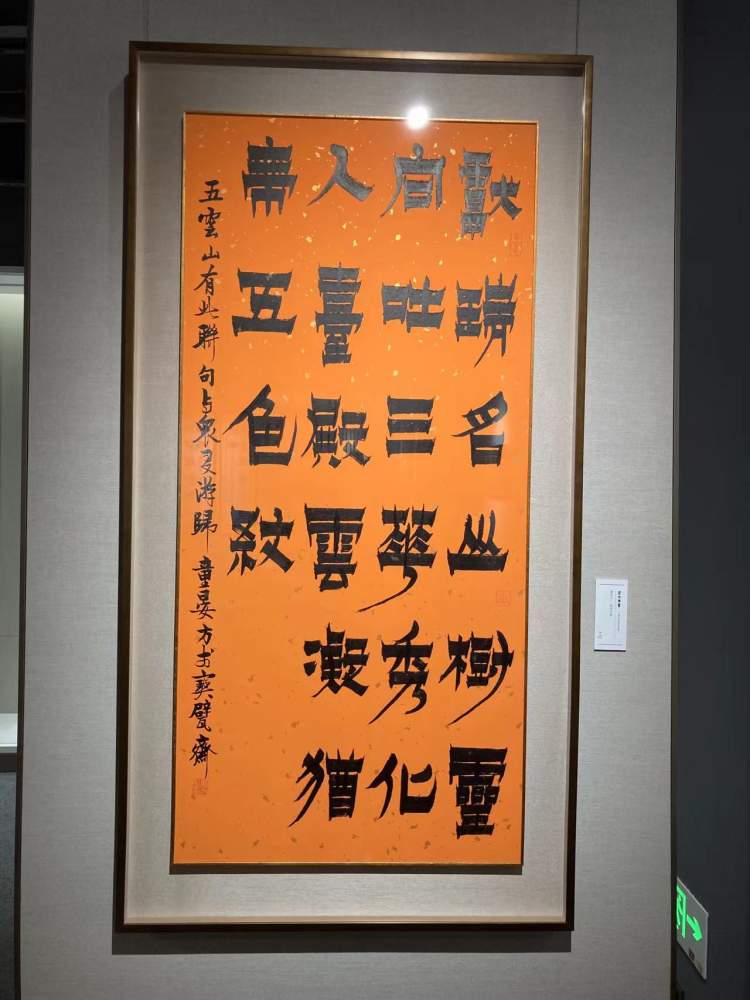 獻瑞名山樹靈
尚吐三華秀化
人臺殿雲凝猶
帶五色紋
五雲山有此聯句与眾友游歸童晏方于寶甓齋